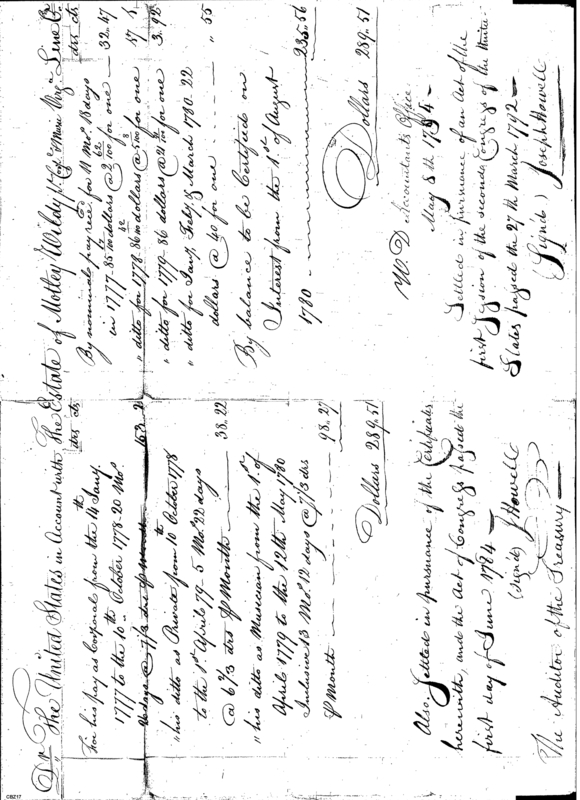 Dr The United States in Account with The Estate of Motley Wildy
drs cts
For his pay as Corporal from the 14th Jany.
1777 to the 10th October 1778. 20 Mos.
days @ 7/3 drs
"his ditto as Private from 10th October 1778
to the 1st April 79 - 5 Mos. 22 days
@ 6 2/3 drs Month 38.22
"his ditto as Musician from the 1st of
April 1779 to the 12th May 1780
Inclusive 13 Mos. 12 days @ 7/3 drs
Month 98.27
Dollars 289.51
Also Settled in pursuance of the Certificate
herewith, and the Act of Congress passed the
first day of June 1784
(Signed) J Howell
The Auditor of the Treasury
Line Cr.
drs cts
By nominal pay rec'd for 11 Mos. 18 days
in 1777 - 85 dollars @ 100 for one 32.47
" ditto for 1778. 86 dollars @ 500 for one
" ditto for 1779 - 86 dollars @ for one 3.92
" ditto for Jany. Feby. & March 1780. 22
dollars @ 40 for one ,, 55
By balance to be Certified on
Interest from the 1st of August
1780 235.56
Dollars 289.51
W. D Accountants Office
May 8th 1794
Settled in pursuance of an Act of the
first Session of the second Congress of the United
States passed the 27th March 1792
(Signed) Joseph Howell
CB217